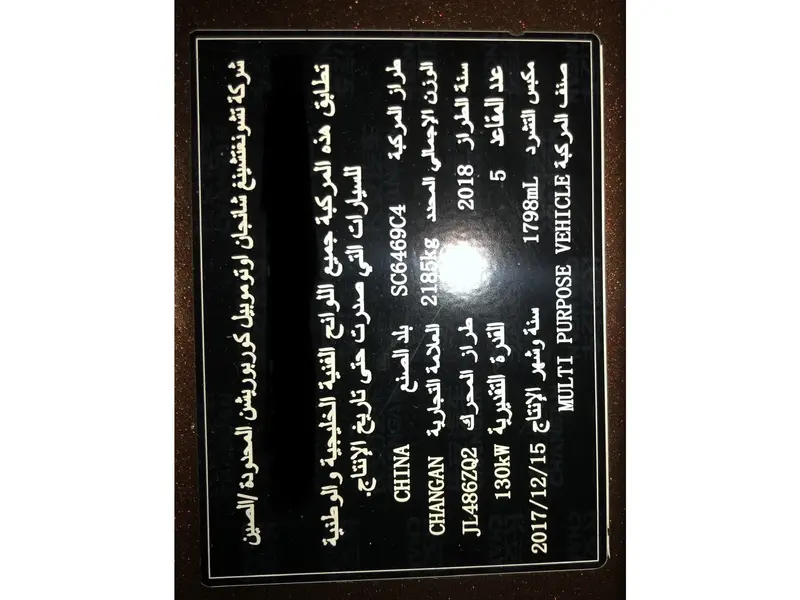 شركة تشونغتشينغ شانجان اوتوموبيل كوربوريشن المحدودة /الصين
تطابق هذه المركبة جميع اللوائح الفنية الخليجية والوطنية
للسيارات التي صدرت حتى تاريخ الإنتاج.
طراز المركبة SC6469C4 بلد الصنع CHINA
الوزن الإجمالي المحدد 2185kg العلامة التجارية CHANGAN
سنة الطراز 2018 طراز المحرك JL486ZQ2
عدد المقاعد 5 القدرة التقديرية 130kW
مكبس التشرد 1798mL سنة وشهر الإنتاج 2017/12/15
صنف المركبة MULTI PURPOSE VEHICLE